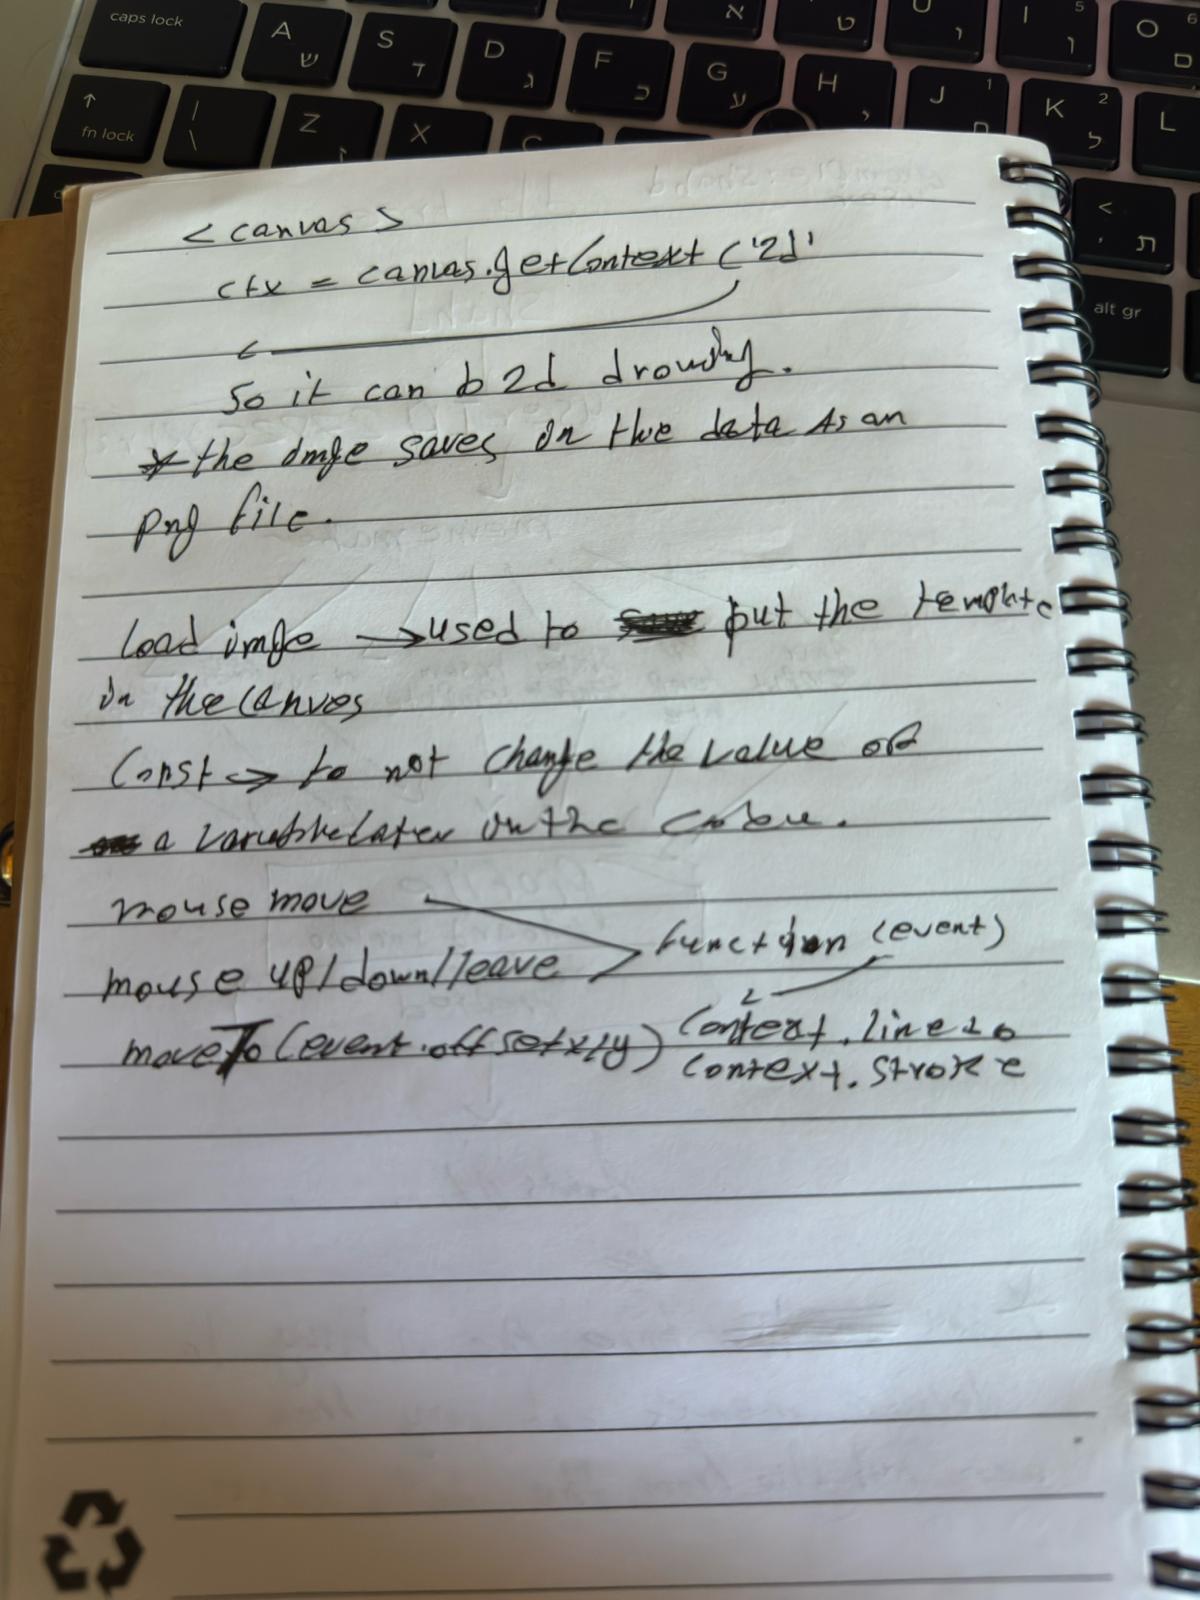 caps lock A ש S ד D ג F כ G ע H י J ח 1 K ל 2 L
fn lock | \ Z ז X
< ת
alt gr
<canvas>
ctx = canvas.getContext ('2d'
so it can b 2d
* the imge saves in the data as an
png file.
Load imge → used to put the template
in the canvos
Const → to not change the value of
a later in the
mouse move
mouse up/down/leave
function (event)
moveTo (event.offsetx/y)
context.lineto
context.stroke